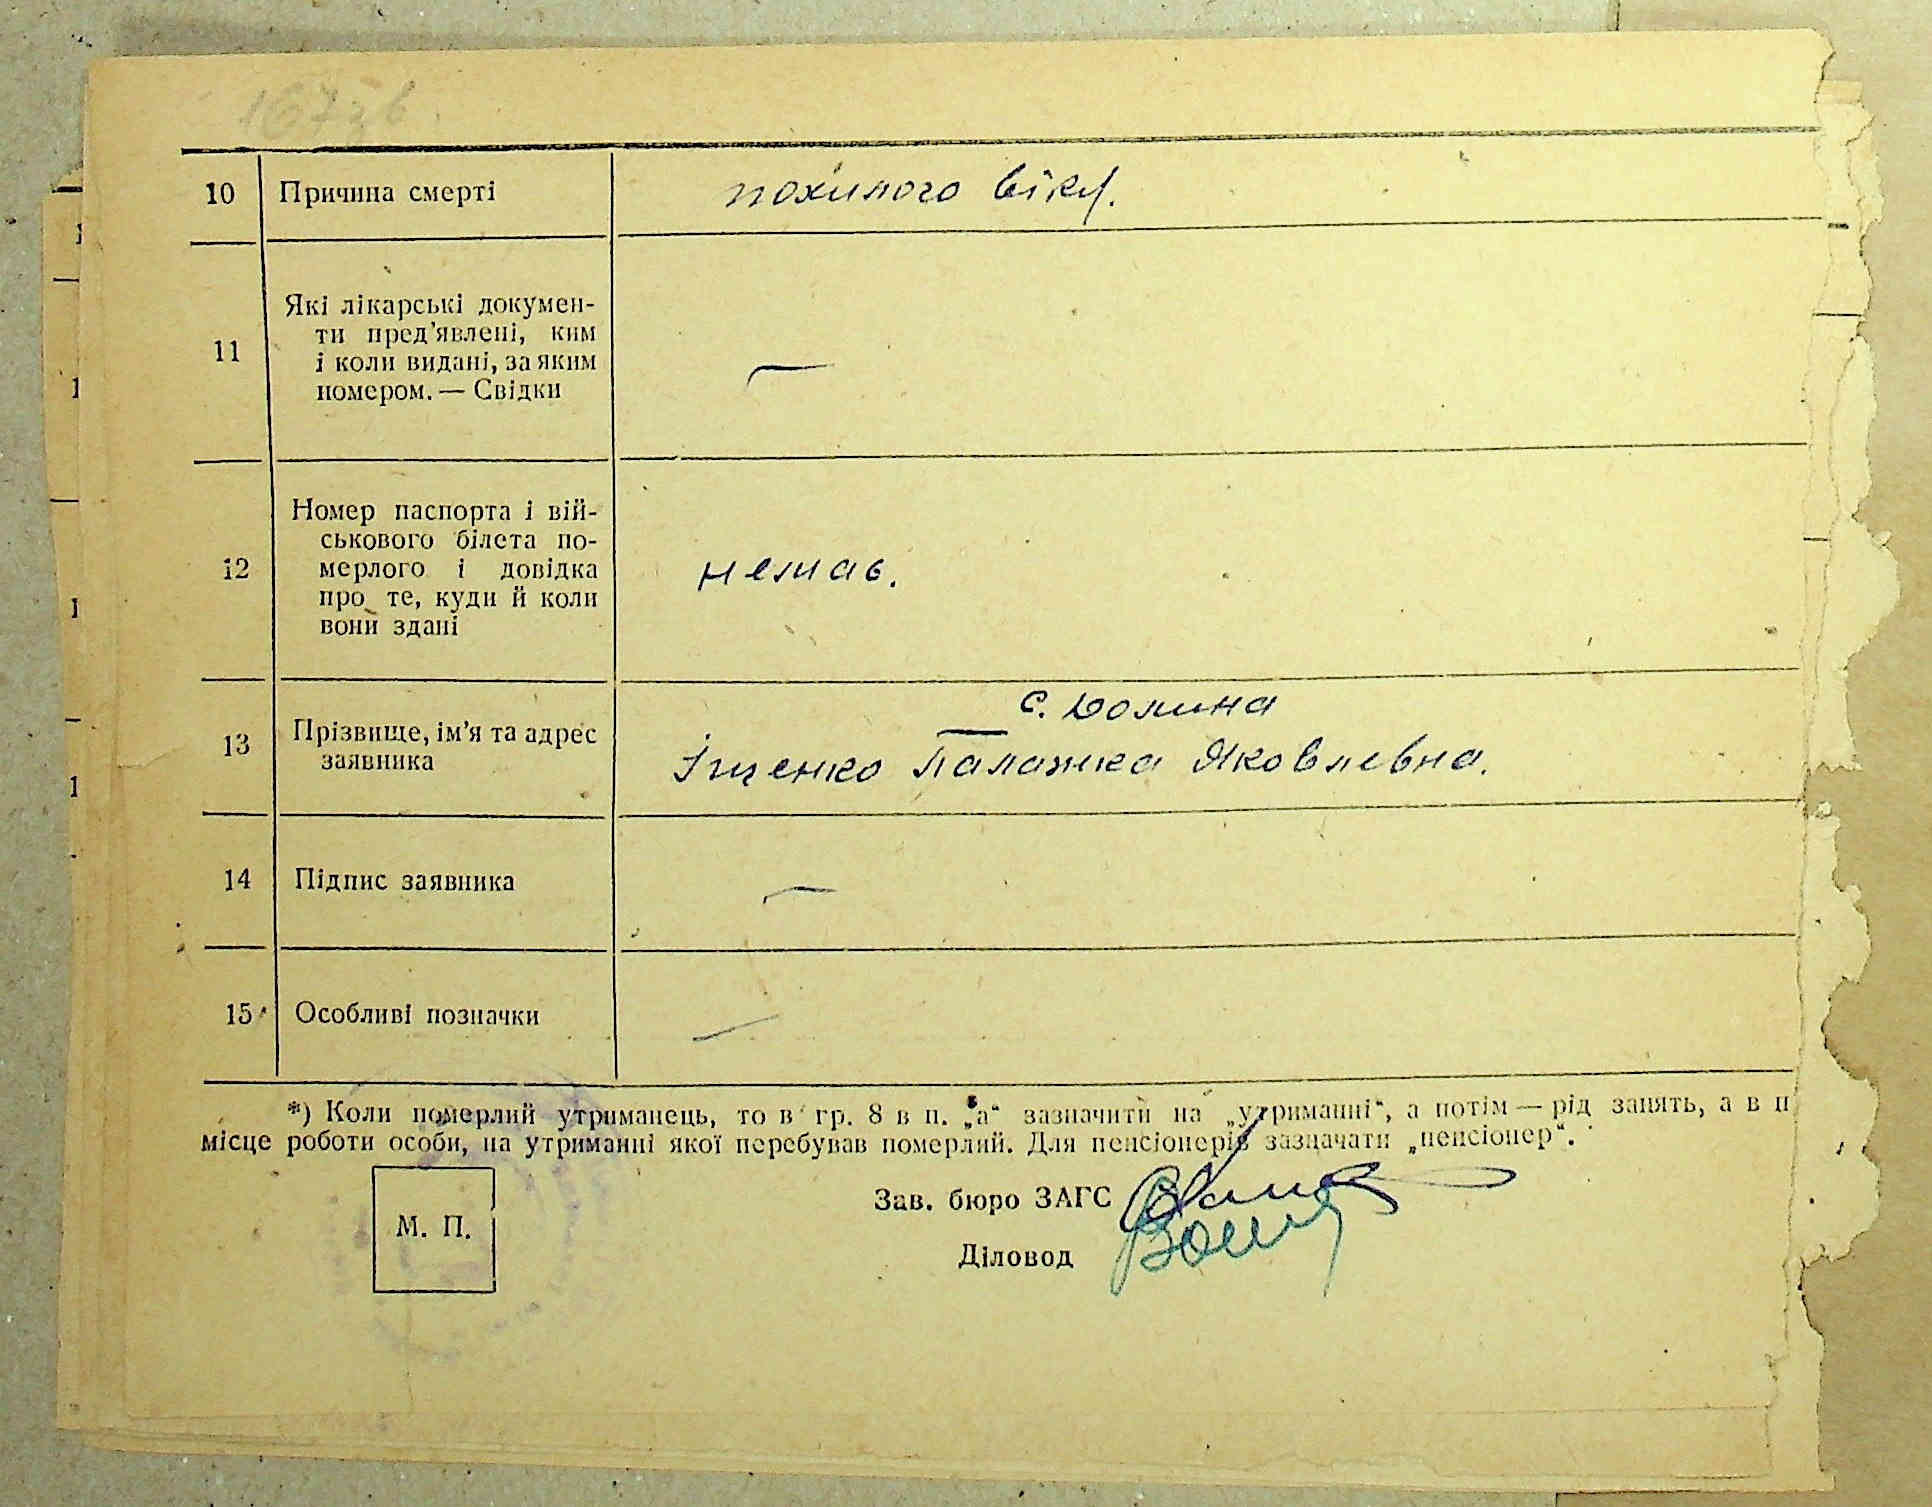 167зв.
10 Причина смерті похилого віку.
11 Які лікарські докумен-
ти пред'явлені, ким
і коли видані, за яким
номером. — Свідки —
12 Номер паспорта і вій-
ськового білета по-
мерлого і довідка
про те, куди й коли
вони здані
немає.
13 Прізвище, ім'я та адрес
заявника
с. Долина
Іщенко Палажка Яковлевна.
14 Підпис заявника —
15 Особливі позначки —
*) Коли померлий утриманець, то в гр. 8 в п. „а“ зазначити на „утриманні“, а потім — рід занять, а в п
місце роботи особи, на утриманні якої перебував померлий. Для пенсіонерів зазначати „пенсіонер“.
Зав. бюро ЗАГС
М. П.
Діловод